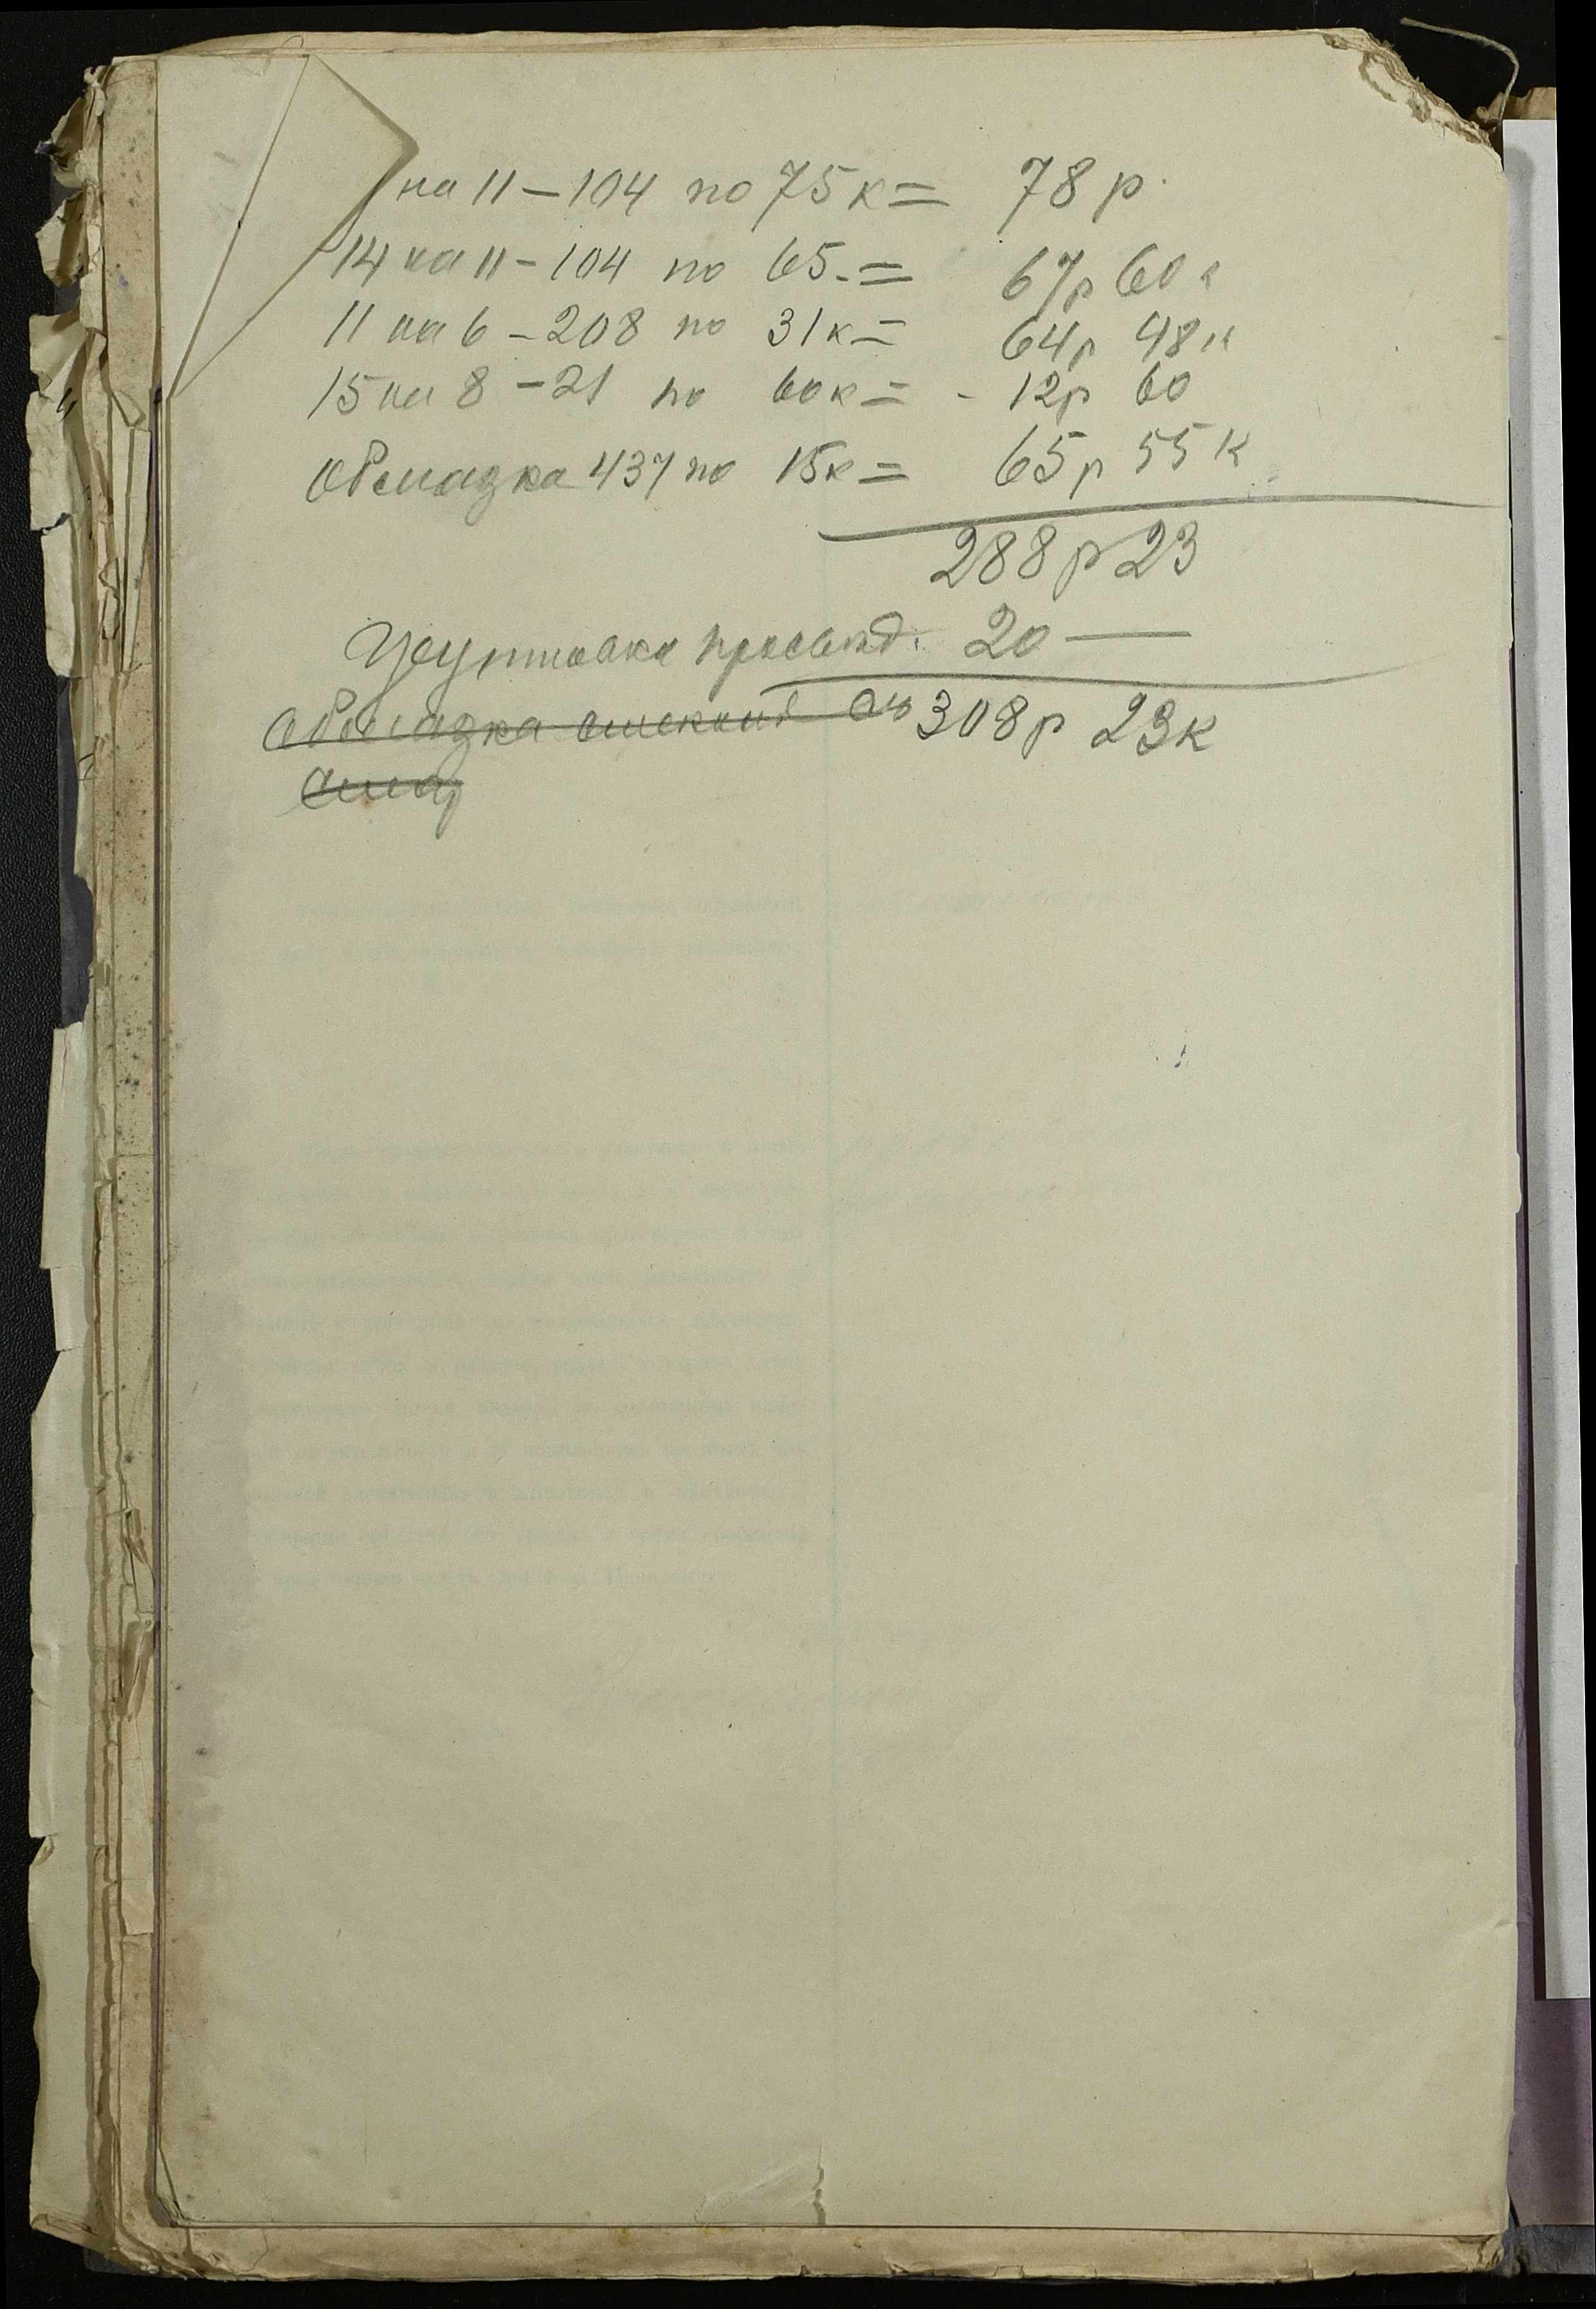 на 11 – 104 по 75 к = 78 р.
14 на 11 – 104 по 65. = 67 р 60 к
11 на 6 – 208 по 31 к = 64 р 48 к
15 на 8 – 21 по 60 к = - 12 р 60
Обмазка 437 по 15 к = 65 р 55 к
288 р 23
20 —
Обмазка стекол 308 р 23 к